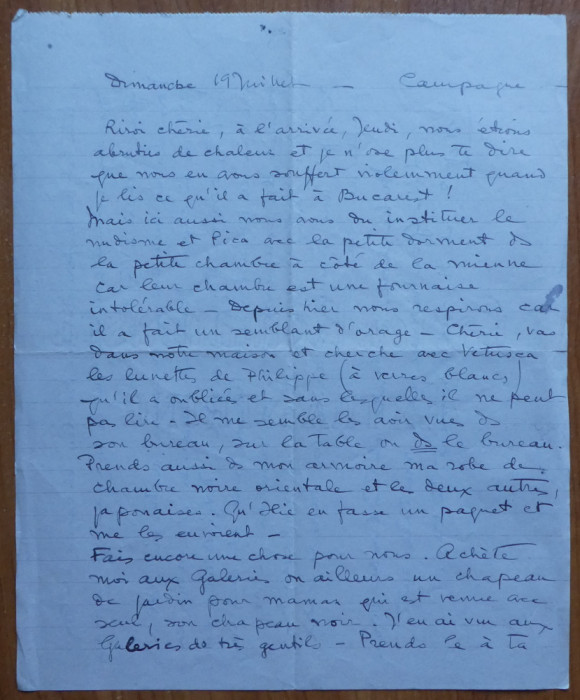 Dimanche 19 Juillet — Campagne —
chérie, à l'arrivée, Jeudi, nous étions
abrutis de chaleur et je n'ose plus te dire
que nous en avons souffert violemment quand
je lis ce qu'il a fait à Bucarest !
Mais ici aussi nous avons du instituer le
nudisme et Pica avec la petite dorment ds
la petite chambre à côté de la mienne
car leur chambre est une fournaise
intolérable — Depuis hier nous respirons car
il a fait un semblant d'orage — Chérie, vas
dans notre maison et cherche avec Vetusca
les lunettes de Philippe (à verres blancs)
qu'il a oubliées et sans lesquelles il ne peut
pas lire — Il me semble les avoir vues ds
son bureau, sur la table ou ds le bureau.
Prends aussi ds mon armoire ma robe de
chambre noire orientale et les deux autres,
japonaises. Qu'Ilie en fasse un paquet et
me les envoient —
Fais encore une chose pour nous. Achète
moi aux Galeries ou ailleurs un chapeau
de jardin pour maman qui est venue avec
seul, son chapeau noir. J'en ai vu aux
Galeries de très gentils — Prends le à ta